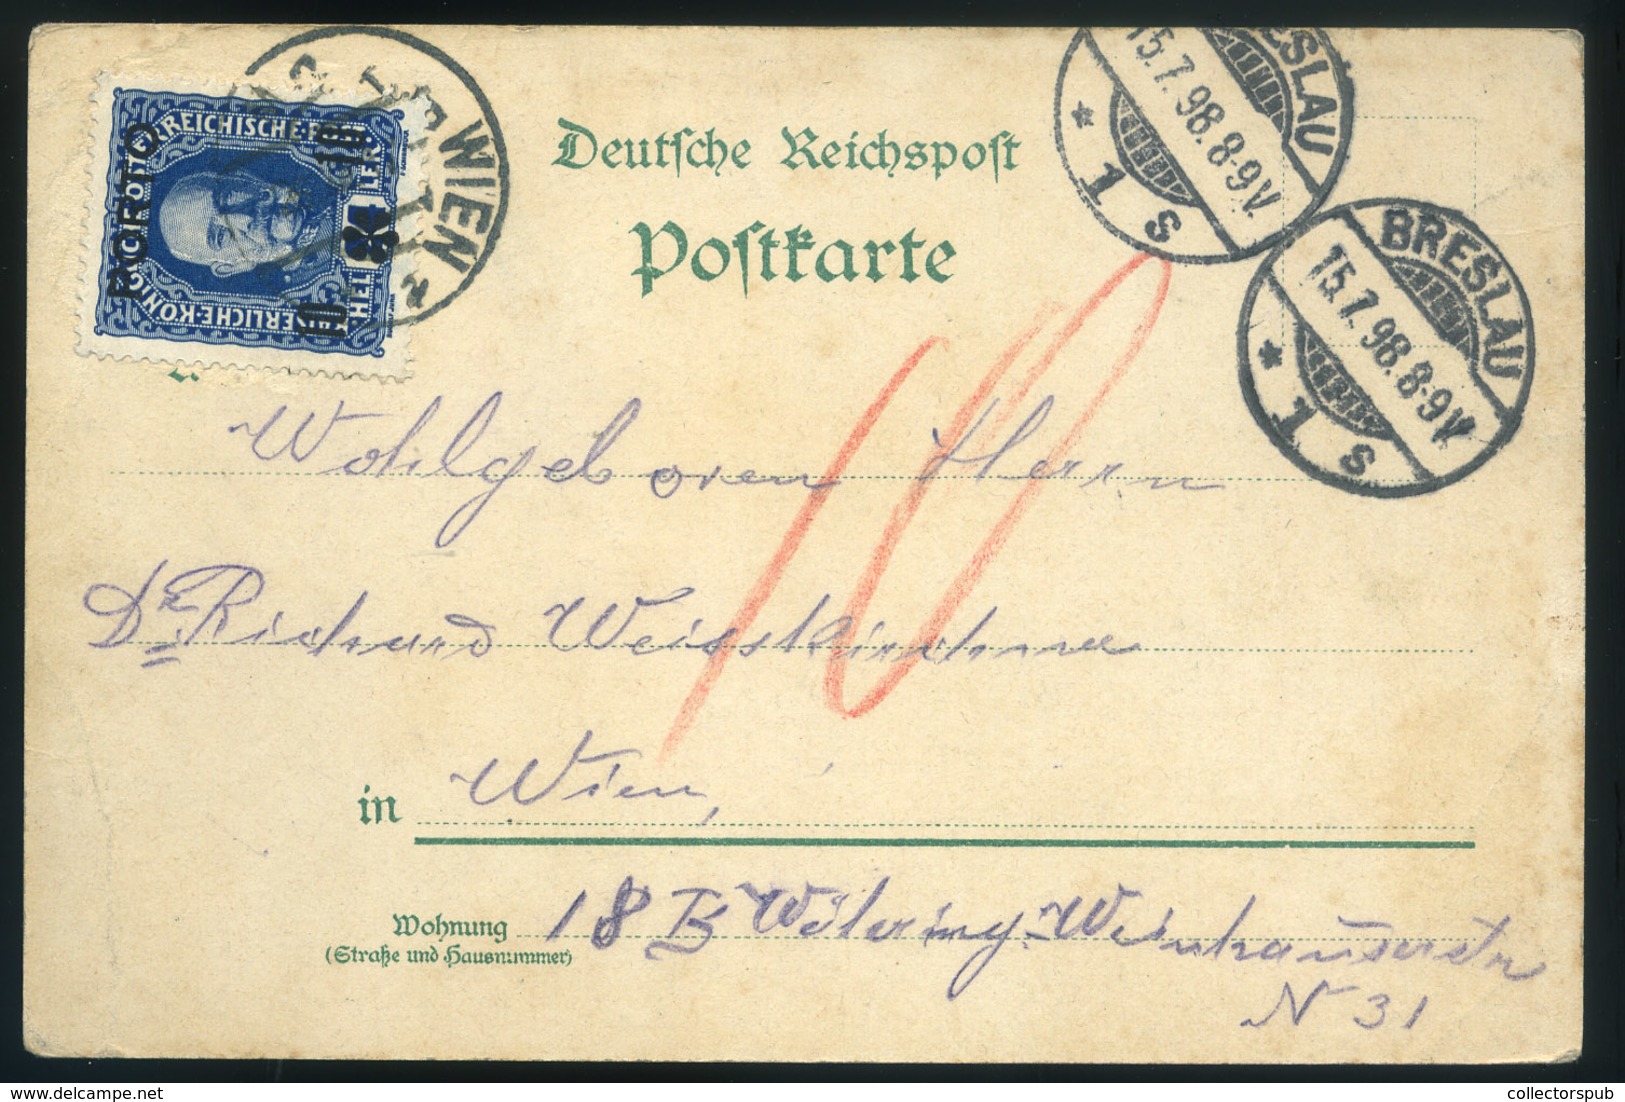 Deutsche Reichspost
Postkarte
BRESLAU
15.7.98.8-9V.
* 1 s
BRESLAU
15.7.98.8-9V.
* 1 s
WIEN
PORTO
REICHISCHE
10
10
HEL LER
10
Wohlgeboren Herrn
Dr. Richard Weisskirchner
in Wien,
Wohnung 18 B Währing Weinhauserstr
(Straße und Hausnummer)
N 31
collectorspub